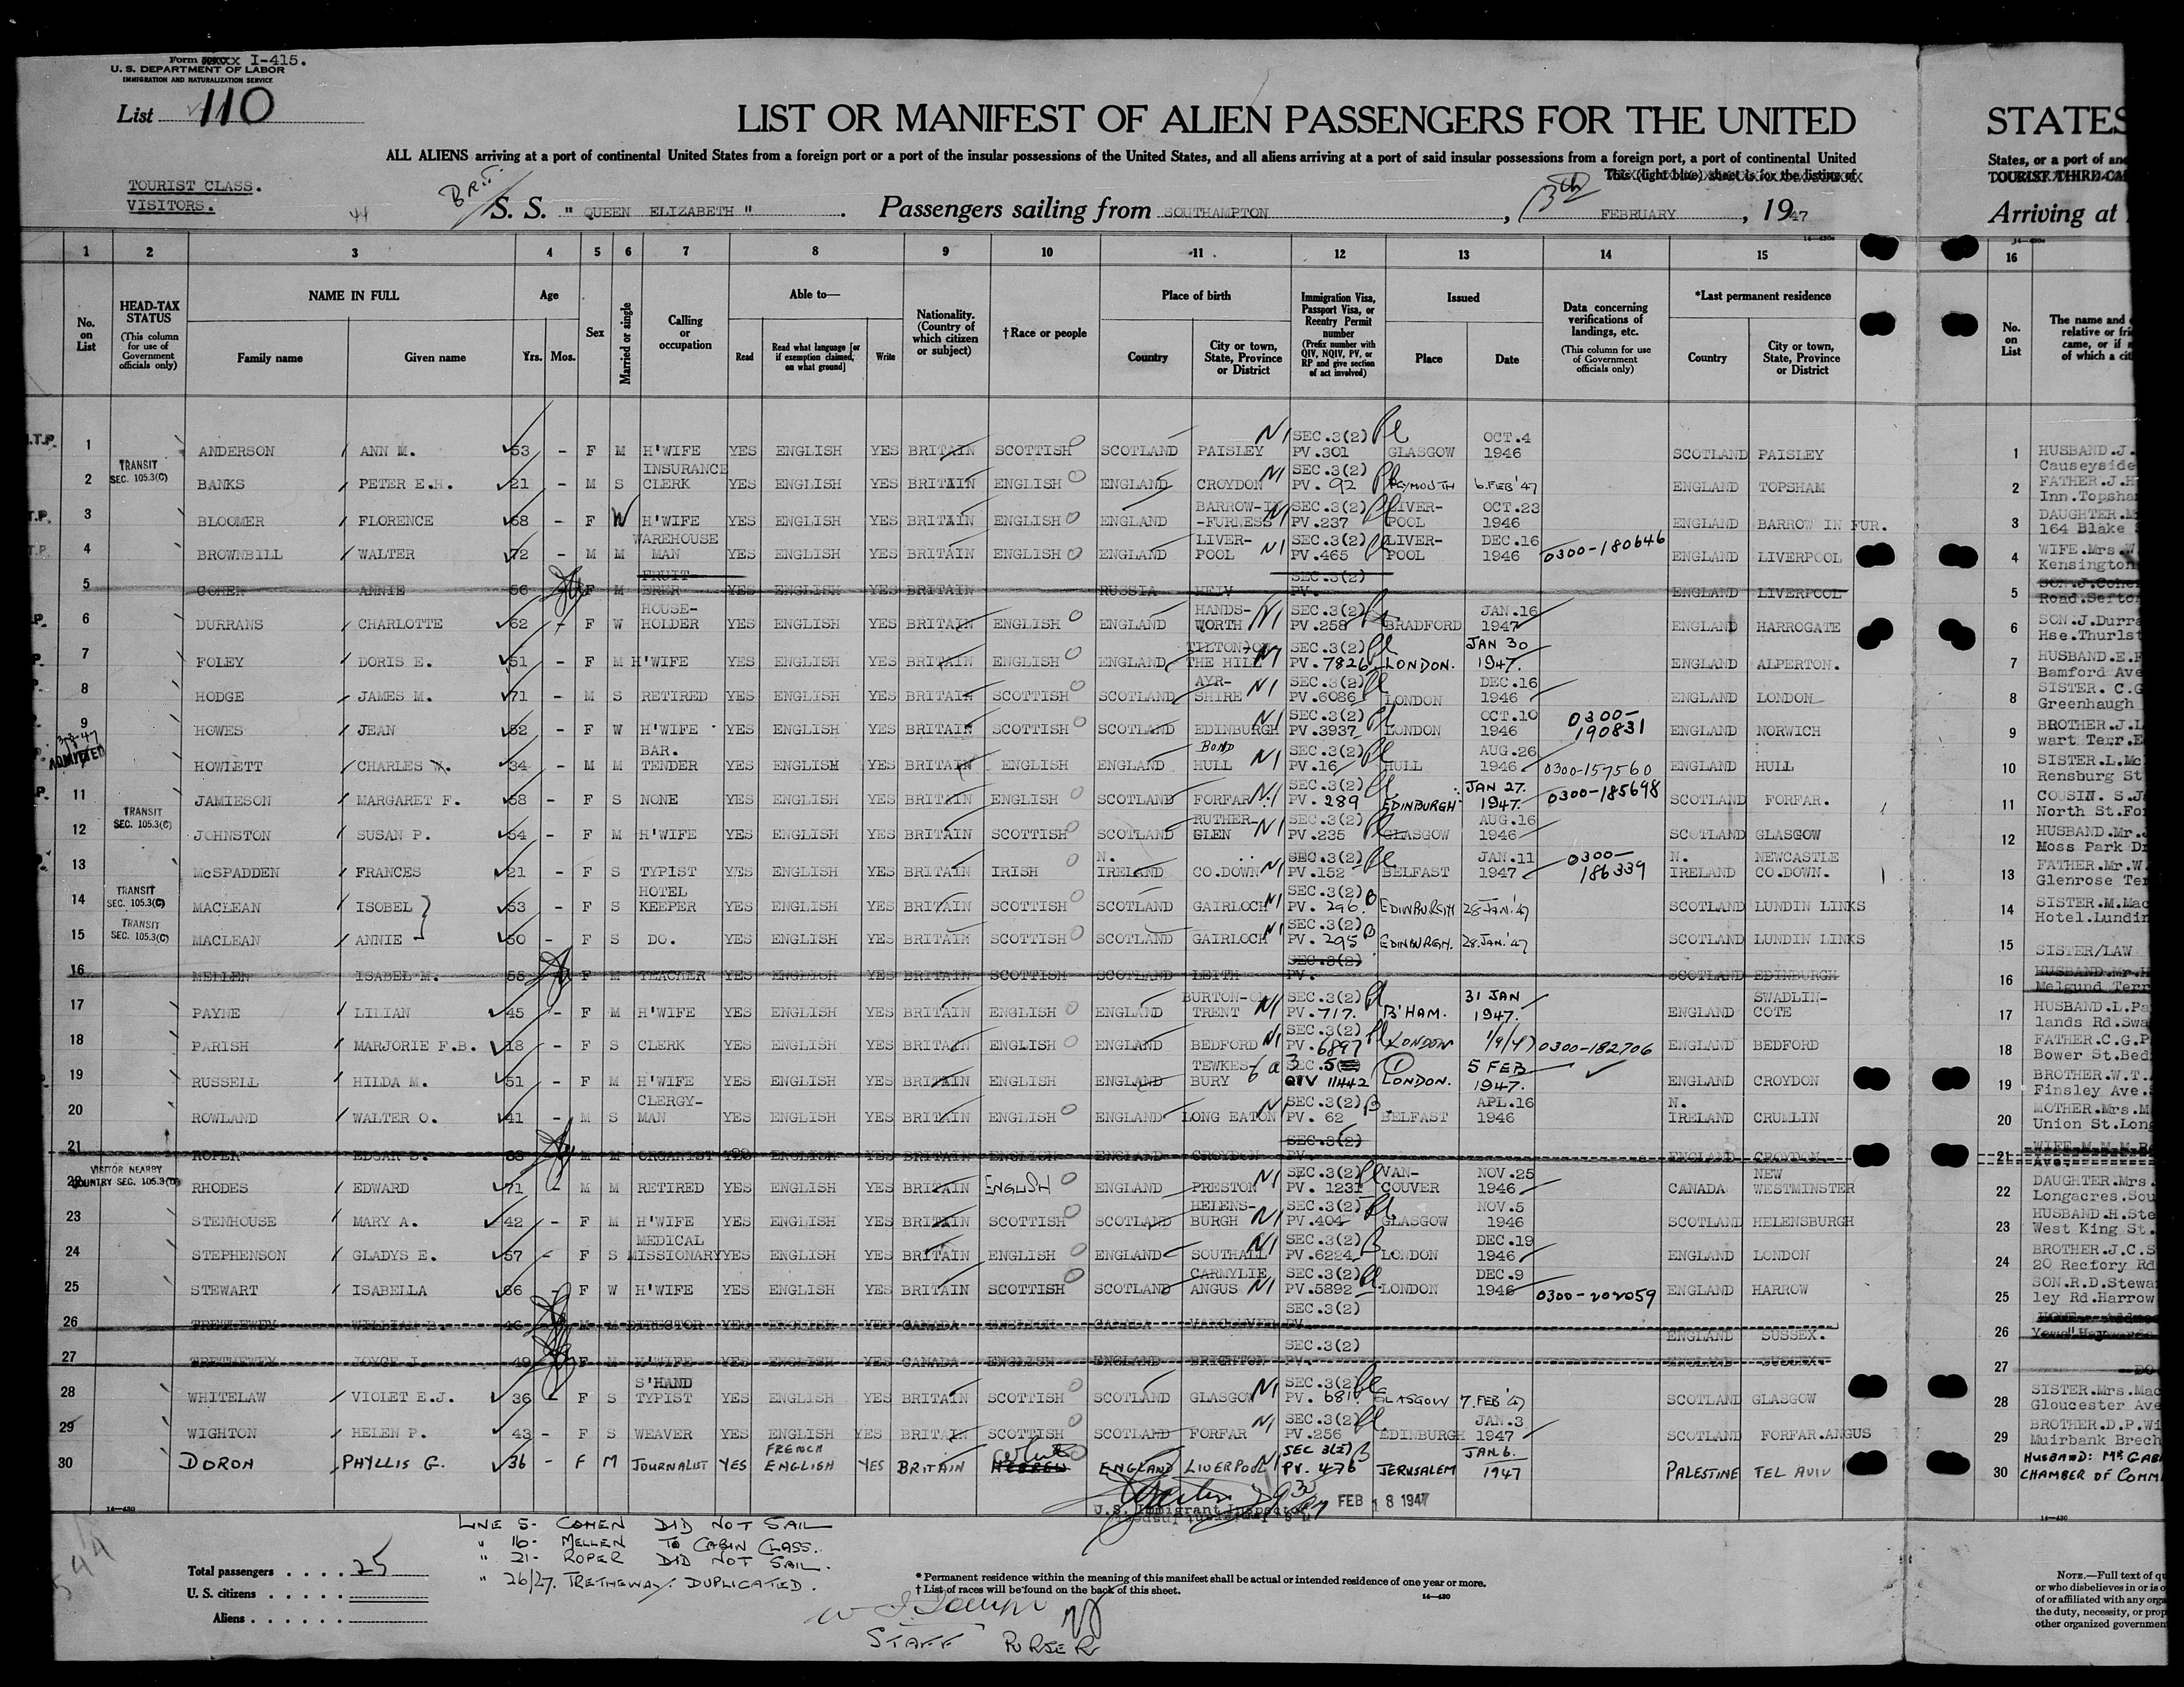 Form I-415.
U. S. DEPARTMENT OF LABOR
IMMIGRATION AND NATURALIZATION SERVICE
List 110
LIST OR MANIFEST OF ALIEN PASSENGERS FOR THE UNITED STATES
ALL ALIENS arriving at a port of continental United States from a foreign port or a port of the insular possessions of the United States, and all aliens arriving at a port of said insular possessions from a foreign port, a port of continental United States, or a port of
This (light blue) sheet is for the listing of
TOURIST CLASS.
VISITORS.
44
BRIT.
S. S. " QUEEN ELIZABETH " . Passengers sailing from SOUTHAMPTON , 13th FEBRUARY , 1947 Arriving at
1 2 3 4 5 6 7 8 9 10 11 12 13 14 15 16
No. on List
HEAD-TAX STATUS (This column for use of Government officials only)
NAME IN FULL Family name Given name
Age Yrs. Mos.
Sex
Married or single
Calling or occupation
Able to— Read Read what language [or if exemption claimed, on what ground] Write
Nationality. (Country of which citizen or subject)
†Race or people
Place of birth Country City or town, State, Province or District
Immigration Visa, Passport Visa, or Reentry Permit number (Prefix number with QIV, NQIV, PV, or RP and give section of act involved)
Issued Place Date
Data concerning verifications of landings, etc. (This column for use of Government officials only)
*Last permanent residence Country City or town, State, Province or District
No. on List
The name and
relative or
came, or if
of which a
1 ANDERSON ANN M. 53 - F M H'WIFE YES ENGLISH YES BRITAIN SCOTTISH SCOTLAND PAISLEY SEC.3(2) PV.301 GLASGOW OCT.4 1946 SCOTLAND PAISLEY 1 HUSBAND.J. Causeyside
2 TRANSIT SEC. 105.3(C) BANKS PETER E.H. 21 - M S INSURANCE CLERK YES ENGLISH YES BRITAIN ENGLISH ENGLAND CROYDON SEC.3(2) PV. 92 PLYMOUTH 6.FEB'47 ENGLAND TOPSHAM 2 FATHER.J.H Inn.Topsha
3 BLOOMER FLORENCE 68 - F W H'WIFE YES ENGLISH YES BRITAIN ENGLISH ENGLAND BARROW-IN -FURNESS SEC.3(2) PV.237 LIVER-POOL OCT.23 1946 ENGLAND BARROW IN FUR. 3 DAUGHTER.M 164 Blake
4 BROWNBILL WALTER 72 - M M WAREHOUSE MAN YES ENGLISH YES BRITAIN ENGLISH ENGLAND LIVER-POOL SEC.3(2) PV.465 LIVER-POOL DEC.16 1946 0300-180646 ENGLAND LIVERPOOL 4 WIFE.Mrs.W Kensington
5 COHEN ANNIE 56 F M FRUIT ERER YES ENGLISH YES BRITAIN RUSSIA SEC.3(2) PV. ENGLAND LIVERPOOL 5 SON.J.Cohe Road.Sefto
6 DURRANS CHARLOTTE 62 - F W HOUSE-HOLDER YES ENGLISH YES BRITAIN ENGLISH ENGLAND HANDS-WORTH SEC.3(2) PV.258 BRADFORD JAN.16 1947 ENGLAND HARROGATE 6 SON.J.Durra Hse.Thurlst
7 FOLEY DORIS E. 51 - F M H'WIFE YES ENGLISH YES BRITAIN ENGLISH ENGLAND TILTON)ON THE HILL SEC.3(2) PV.7826 LONDON. JAN 30 1947. ENGLAND ALPERTON. 7 HUSBAND.E.F Bamford Ave
8 HODGE JAMES M. 71 - M S RETIRED YES ENGLISH YES BRITAIN SCOTTISH SCOTLAND AYR-SHIRE SEC.3(2) PV.6086 LONDON DEC.16 1946 ENGLAND LONDON 8 SISTER. C.G Greenhaugh
9 HOWES JEAN 52 - F W H'WIFE YES ENGLISH YES BRITAIN SCOTTISH SCOTLAND EDINBURGH SEC.3(2) PV.3937 LONDON OCT.10 1946 0300-190831 ENGLAND NORWICH 9 BROTHER.J.L wart Terr.E
3-3-47 ADMITTED HOWLETT CHARLES W. 34 - M M BAR. TENDER YES ENGLISH YES BRITAIN ENGLISH ENGLAND HULL BOND SEC.3(2) PV.16 HULL AUG.26 1946 0300-157560 ENGLAND HULL 10 SISTER.L.Mc Rensburg St
11 JAMIESON MARGARET F. 58 - F S NONE YES ENGLISH YES BRITAIN ENGLISH SCOTLAND FORFAR SEC.3(2) PV. 289 EDINBURGH JAN 27. 1947. 0300-185698 SCOTLAND FORFAR. 11 COUSIN. S.J North St.For
12 TRANSIT SEC. 105.3(C) JOHNSTON SUSAN P. 54 - F M H'WIFE YES ENGLISH YES BRITAIN SCOTTISH SCOTLAND RUTHER-GLEN SEC.3(2) PV.235 GLASGOW AUG.16 1946 SCOTLAND GLASGOW 12 HUSBAND.Mr.J Moss Park Dr
13 McSPADDEN FRANCES 21 - F S TYPIST YES ENGLISH YES BRITAIN IRISH N. IRELAND CO.DOWN SEC.3(2) PV.152 BELFAST JAN.11 1947 0300-186339 N. IRELAND NEWCASTLE CO.DOWN. 13 FATHER.Mr.W. Glenrose Ter
14 TRANSIT SEC. 105.3(C) MACLEAN ISOBEL 53 - F S HOTEL KEEPER YES ENGLISH YES BRITAIN SCOTTISH SCOTLAND GAIRLOCH SEC.3(2) PV. 296 EDINBURGH 28 JAN.'47 SCOTLAND LUNDIN LINKS 14 SISTER.M.Mac Hotel.Lundin
15 TRANSIT SEC. 105.3(C) MACLEAN ANNIE 50 - F S DO. YES ENGLISH YES BRITAIN SCOTTISH SCOTLAND GAIRLOCH SEC.3(2) PV. 295 EDINBURGH. 28.JAN.'47 SCOTLAND LUNDIN LINKS 15 SISTER/LAW
16 MELLEN ISABEL M. 58 F M TEACHER YES ENGLISH YES BRITAIN SCOTTISH SCOTLAND LEITH SEC.3(2) PV. SCOTLAND EDINBURGH 16 HUSBAND.Mr.H Melgund Terr
17 PAYNE LILIAN 45 - F M H'WIFE YES ENGLISH YES BRITAIN ENGLISH ENGLAND BURTON-ON TRENT SEC.3(2) PV.717. B'HAM. 31 JAN 1947. ENGLAND SWADLIN-COTE 17 HUSBAND.L.Pa lands Rd.Swa
18 PARISH MARJORIE F.B. 18 - F S CLERK YES ENGLISH YES BRITAIN ENGLISH ENGLAND BEDFORD SEC.3(2) PV.6897 LONDON 1/9/47 0300-182706 ENGLAND BEDFORD 18 FATHER.C.G.P Bower St.Bed
19 RUSSELL HILDA M. 51 - F M H'WIFE YES ENGLISH YES BRITAIN ENGLISH ENGLAND TEWKES-BURY SEC.5 QIV 11442 LONDON. 5 FEB 1947. ENGLAND CROYDON 19 BROTHER.W.T. Finsley Ave.
20 ROWLAND WALTER O. 41 - M S CLERGY-MAN YES ENGLISH YES BRITAIN ENGLISH ENGLAND LONG EATON SEC.3(2) PV. 62 BELFAST APL.16 1946 N. IRELAND CRUMLIN 20 MOTHER.Mrs.M Union St.Long
21 ROPER EDGAR S. 68 M M ORGANIST YES ENGLISH YES BRITAIN ENGLISH ENGLAND CROYDON SEC.3(2) PV. ENGLAND CROYDON 21 WIFE Ave.
22 VISITOR NEARBY COUNTRY SEC. 105.3(D) RHODES EDWARD 71 - M M RETIRED YES ENGLISH YES BRITAIN ENGLISH ENGLAND PRESTON SEC.3(2) PV. 1231 VAN-COUVER NOV.25 1946 CANADA NEW WESTMINSTER 22 DAUGHTER.Mrs. Longacres.Sou
23 STENHOUSE MARY A. 42 - F M H'WIFE YES ENGLISH YES BRITAIN SCOTTISH SCOTLAND HELENS-BURGH SEC.3(2) PV.404 GLASGOW NOV.5 1946 SCOTLAND HELENSBURGH 23 HUSBAND.H.Ste West King St.
24 STEPHENSON GLADYS E. 57 - F S MEDICAL MISSIONARY YES ENGLISH YES BRITAIN ENGLISH ENGLAND SOUTHALL SEC.3(2) PV.6224 LONDON DEC.19 1946 ENGLAND LONDON 24 BROTHER.J.C.S 20 Rectory Rd
25 STEWART ISABELLA 66 - F W H'WIFE YES ENGLISH YES BRITAIN SCOTTISH SCOTLAND CARMYLIE ANGUS SEC.3(2) PV.5892 LONDON DEC.9 1946 0300-202059 ENGLAND HARROW 25 SON.R.D.Stewa ley Rd.Harrow
26 TRETHEWEY WILLIAM B. 46 M M DIRECTOR YES ENGLISH YES CANADA ENGLISH CANADA VANCOUVER SEC.3(2) PV. ENGLAND SUSSEX. 26
27 TRETHEWEY JOYCE J. 49 F M H'WIFE YES ENGLISH YES CANADA ENGLISH ENGLAND BRIGHTON SEC.3(2) PV. ENGLAND SUSSEX. 27 DO
28 WHITELAW VIOLET E.J. 36 - F S S'HAND TYPIST YES ENGLISH YES BRITAIN SCOTTISH SCOTLAND GLASGOW SEC.3(2) PV. 681 GLASGOW 7.FEB'47 SCOTLAND GLASGOW 28 SISTER.Mrs.Mac Gloucester Ave
29 WIGHTON HELEN P. 43 - F S WEAVER YES ENGLISH YES BRITAIN SCOTTISH SCOTLAND FORFAR SEC.3(2) PV.256 EDINBURGH JAN.3 1947 SCOTLAND FORFAR.ANGUS 29 BROTHER.D.P.Wi Muirbank Brech
30 DORON PHYLLIS G. 36 - F M JOURNALIST YES FRENCH ENGLISH YES BRITAIN HEBREW ENGLAND LIVERPOOL SEC 3(2) PV. 476 JERUSALEM JAN 6. 1947 PALESTINE TEL AVIV 30 HUSBAND: MR GAB CHAMBER OF COMM
U.S. Immigrant Inspector FEB 18 1947
LINE 5- COHEN DID NOT SAIL
" 16- MELLEN TO CABIN CLASS.
" 21- ROPER DID NOT SAIL.
" 26/27. TRETHEWAY. DUPLICATED.
Total passengers . . . . 25
U. S. citizens . . . . .
Aliens . . . . . .
* Permanent residence within the meaning of this manifest shall be actual or intended residence of one year or more.
† List of races will be found on the back of this sheet.
14—430
STAFF PURSER
NOTE.—Full text of
or who disbelieves in or is
of or affiliated with any
the duty, necessity, or
other organized governmen